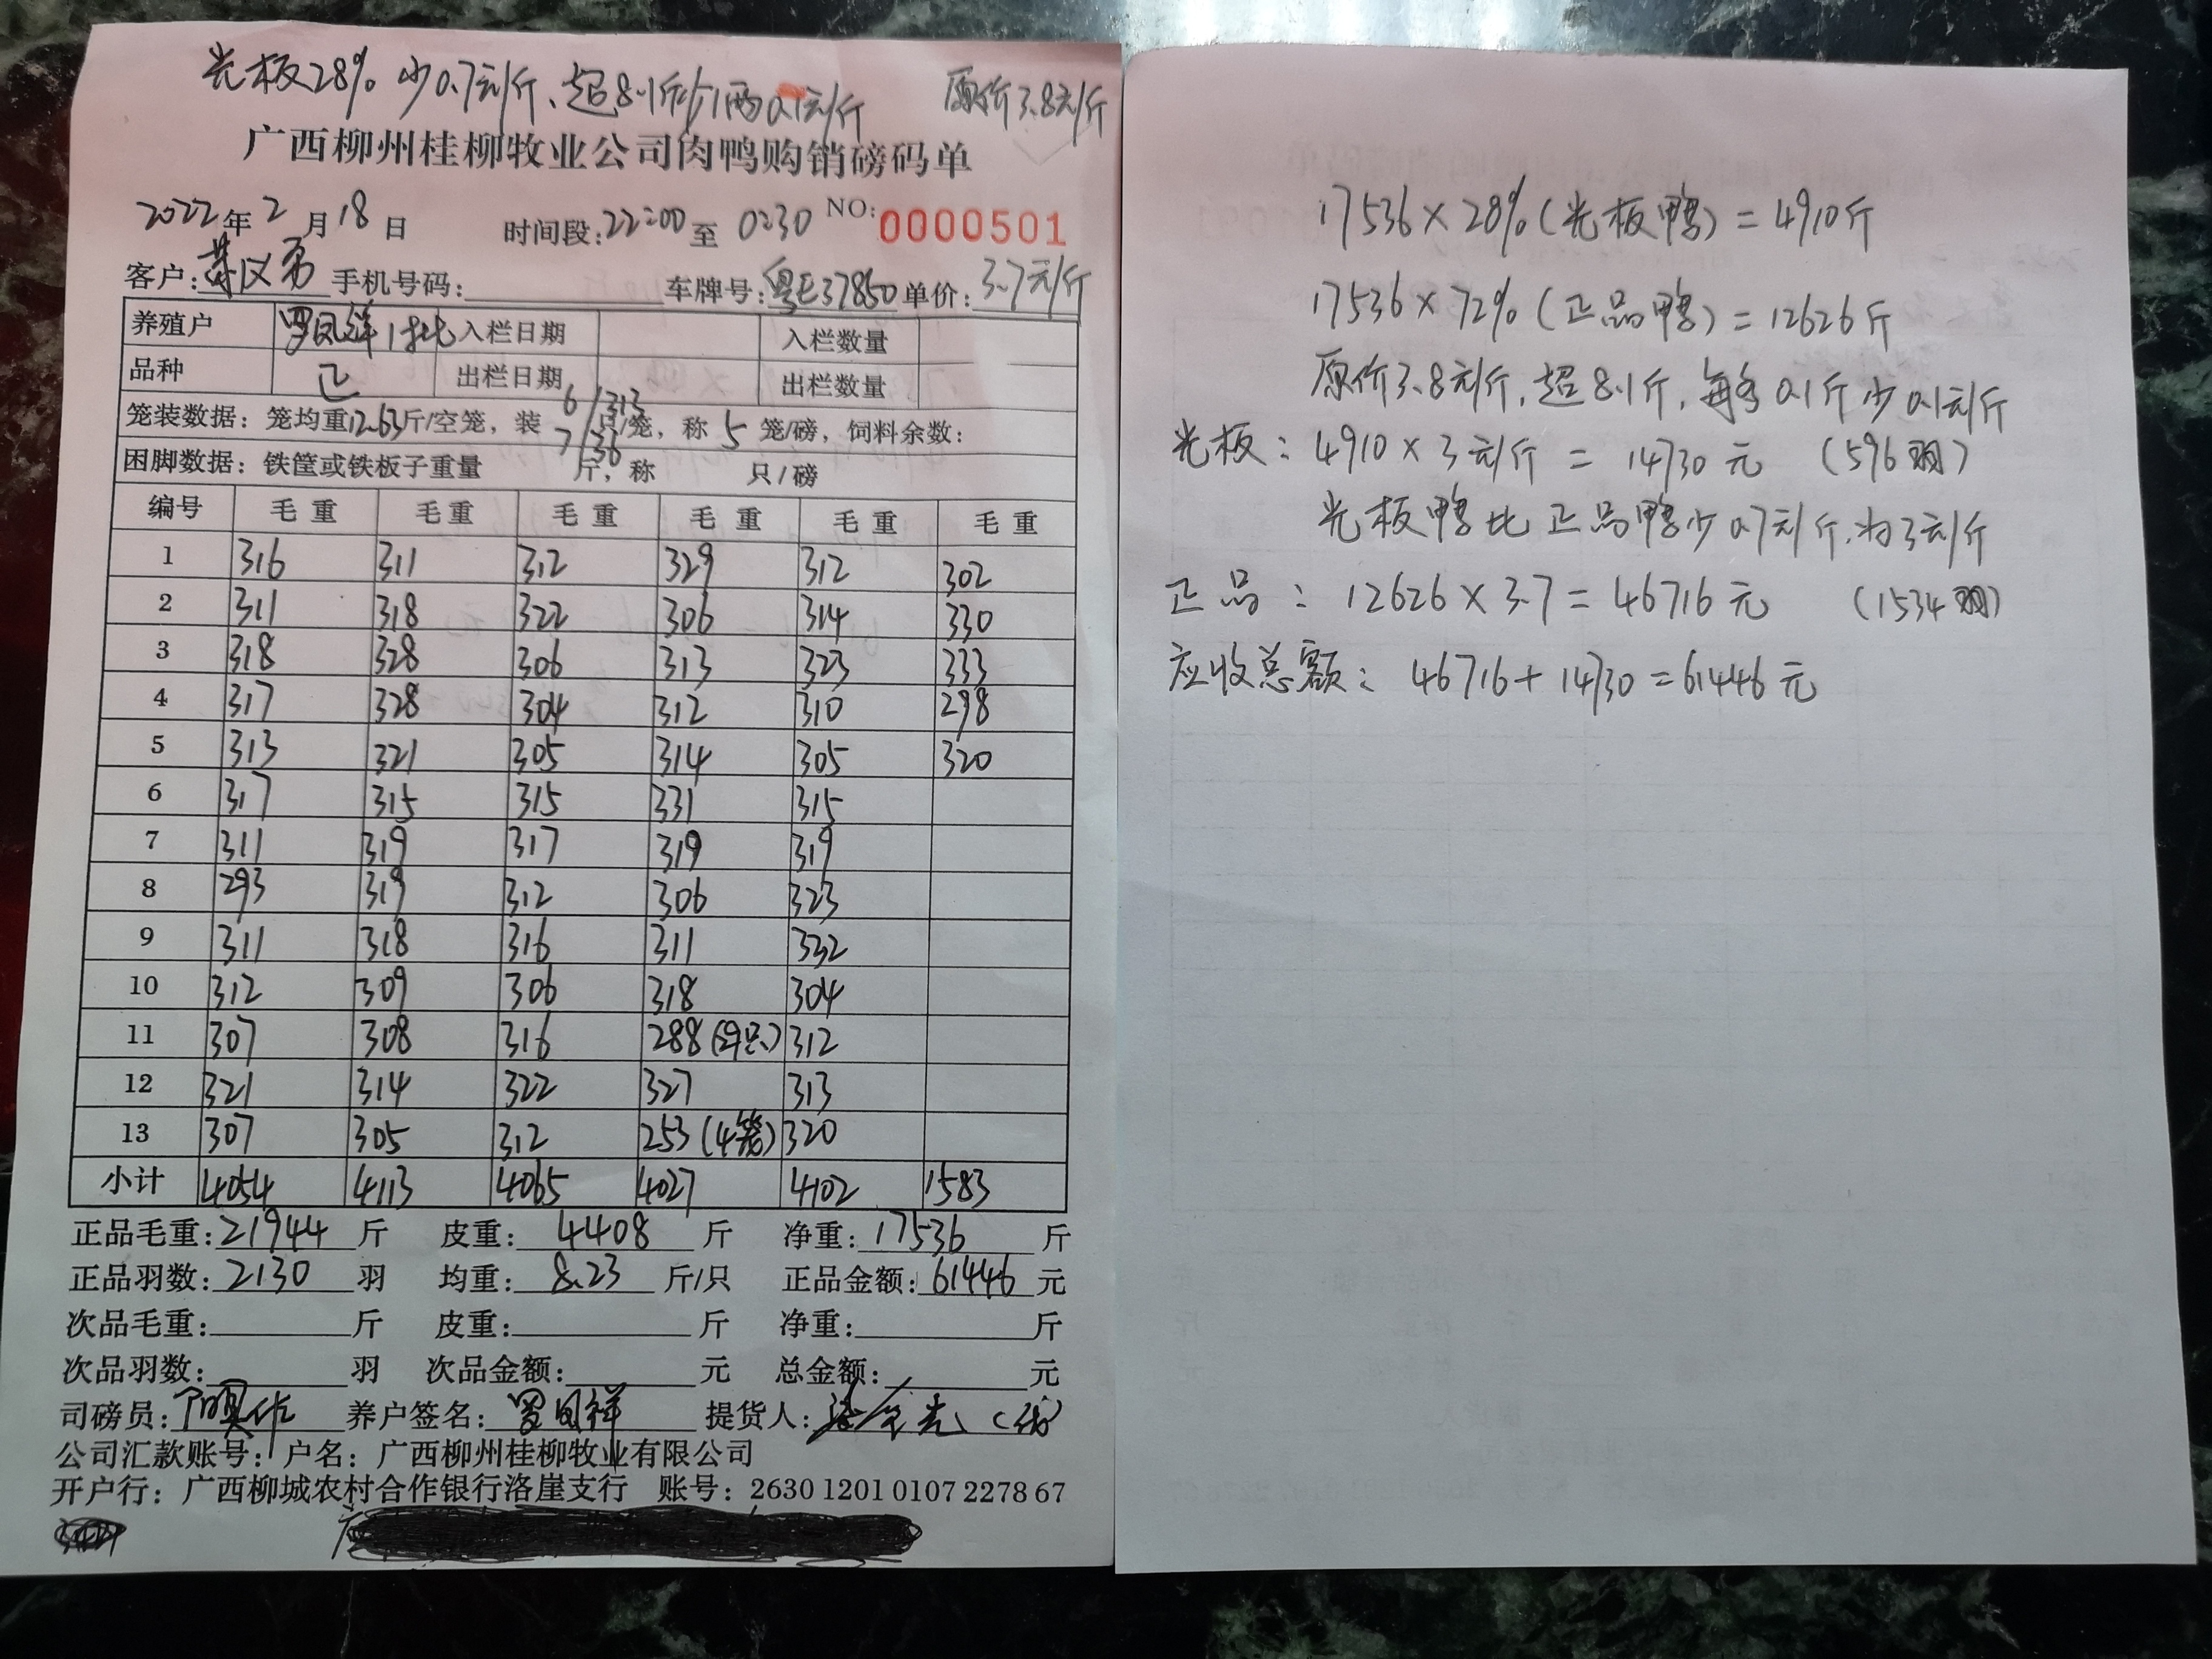 光板28% 少0.7元/斤、超8.1斤少1两0.1元/斤 原价3.8元/斤
广西柳州桂柳牧业公司肉鸭购销磅码单
2022年2月18日 时间段:22:00至0:30 NO:0000501
客户: 手机号码: 车牌号:粤E37850 单价:3.7元/斤
养殖户 罗凤祥1批 入栏日期 入栏数量
品种 出栏日期 出栏数量
笼装数据:笼均重12.63斤/空笼,装6/313 7/36只/笼,称5笼/磅,饲料余数:
困脚数据:铁筐或铁板子重量 斤,称 只/磅
编号 毛重 毛重 毛重 毛重 毛重 毛重
1 316 311 312 329 312 302
2 311 318 322 306 314 330
3 318 328 306 313 323 333
4 317 328 304 312 310 298
5 313 321 305 314 305 320
6 317 315 315 331 315
7 311 319 317 319 319
8 293 319 312 306 323
9 311 318 316 311 332
10 312 309 306 318 304
11 307 308 316 288 312
12 321 314 322 327 313
13 307 305 312 253(4笼) 320
小计 4054 4113 4065 4027 4102 1583
正品毛重:21944斤 皮重:4408斤 净重:17536斤
正品羽数:2130羽 均重:8.23斤/只 正品金额:61446元
次品毛重: 斤 皮重: 斤 净重: 斤
次品羽数: 羽 次品金额: 元 总金额: 元
司磅员: 养户签名:罗凤祥 提货人:
公司汇款账号:户名:广西柳州桂柳牧业有限公司
开户行:广西柳城农村合作银行洛崖支行 账号:2630 1201 0107 2278 67
17536×28%(光板鸭)=4910斤
17536×72%(正品鸭)=12626斤
原价3.8元/斤,超8.1斤,每多0.1斤少0.1元/斤
光板:4910×3元/斤=14730元 (596羽)
光板鸭比正品鸭少0.7元/斤.为3元/斤
正品:12626×3.7=46716元 (1534羽)
应收总额:46716+14730=61446元